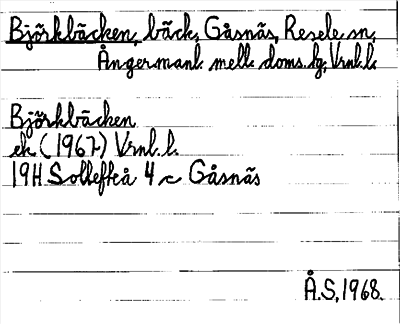 Björkbäcken, bäck, Gåsnäs, Resele sn,
Ångermanl. mell. doms. hg, Vrnl. l.
Björkbäcken
ek (1967) Vrnl. l.
19H Sollefteå 4 c Gåsnäs
Å.S, 1968.